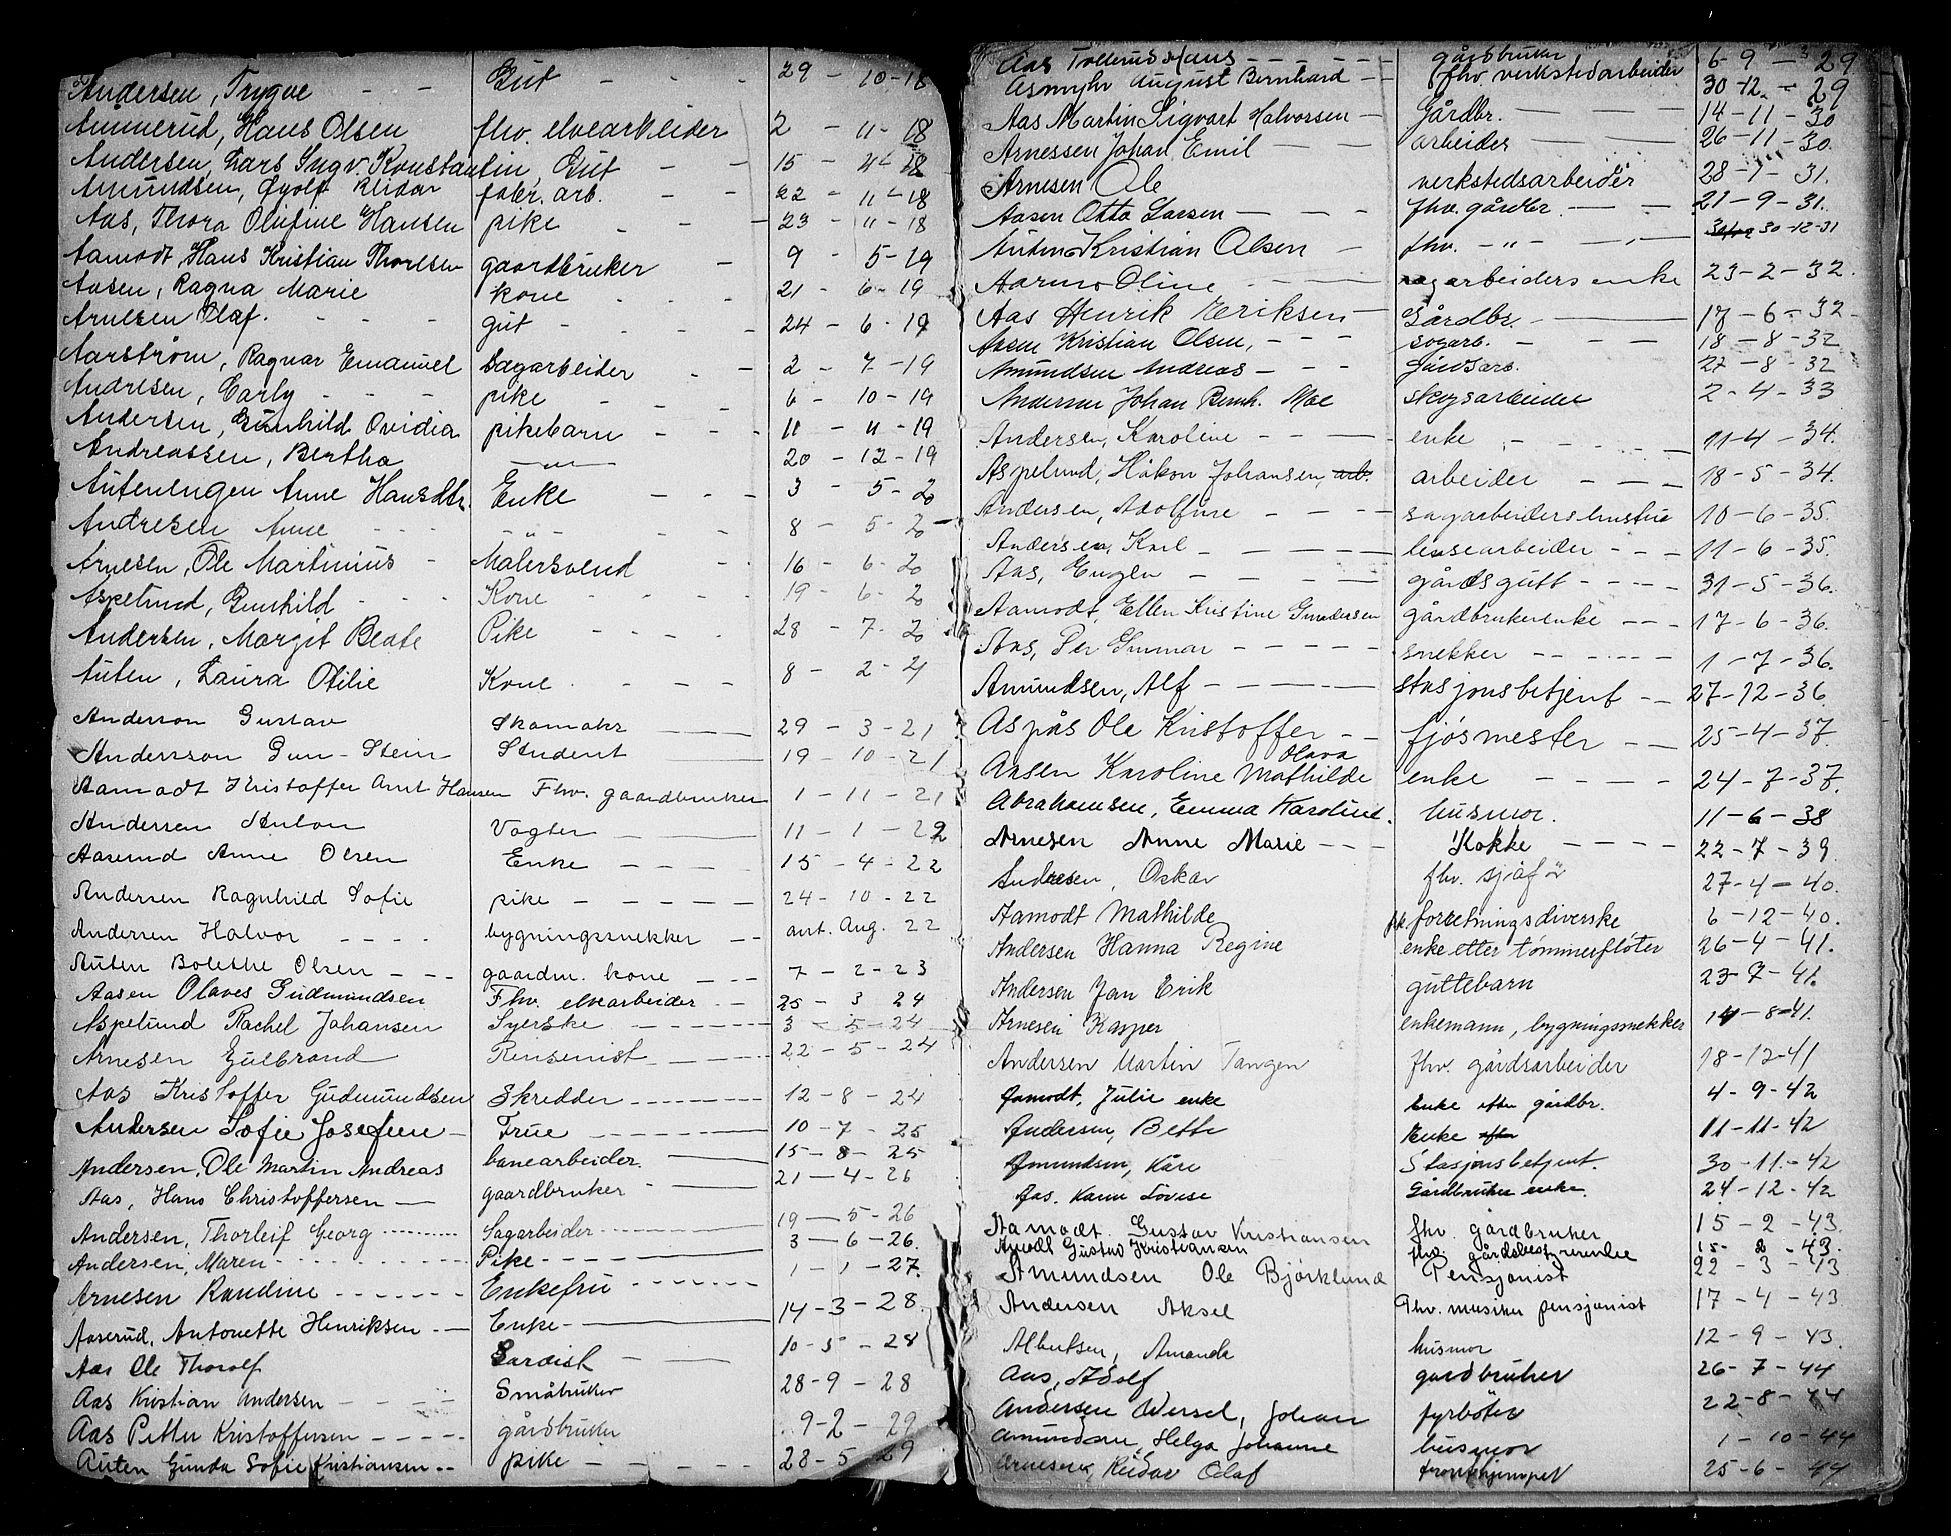 Andersen, Trygve - - Gut - - - 29 - 10-18
Ammerud, Hans Olsen fhv. elvearbeider 2 - 11-18
Andersen, Lars Ingv. Konstantin, Gut - - 15 - 11-18
Amundsen, Reidar fabr. arb. - - 22 - 11-18
Aas, Thora Olufine Hansen pike - - 23 - 11-18
Aamodt, Hans Kristian Thoresen gaardbruker - 9 - 5-19
Aasen, Ragna Marie kone - - - 21 - 6-19
Arnesen Olaf. - - - gut - - - - 24 - 6-19
Aarström, Ragnar Emanuel Sagarbeider - - 2 - 7-19
Andresen, Carly - - - pike - - - 6 - 10-19
Andersen, Gunhild Ovidia pikebarn - - - 11 - 11-19
Andreassen, Bertha -"- 20 - 12-19
Autenengen Anne Hansdtr. Enke - - - 3 - 5-20
Andresen Anne - - - - " - - - 8 - 5-20
Arnesen, Ole Martinius - Malersvend - - 16 - 6-20
Aspelund, Gunhild - - - Kone - - - - 19 - 6-20
Andersen, Margit Beate Pike - - - - 28 - 7-20
Auten, Laura Otilie Kone - - - - 8 - 2-21
Anderson Gustav Skomakr - 29 - 3-21
Andersson Gun-Stein Student - 19 - 10-21
Aamodt Kristoffer Amt Hansen Fhv. gaardbruker 1 - 11-21
Andersen Anton Vogter - 11 - 1-22
Aaserud Anne Olsen Enke - - - 15 - 4-22
Andersen Ragnhild Sofie pike - - - - - 24 - 10-22
Andersen Halvor - - - - bygningssnekker - - ant. Aug. 22
Auten Bolethe Olsen - - - gaardm. kone - - 7 - 2-23
Aasen Olaves Gudmundsen Fhv. elvearbeider - - 25 - 3 24
Aspelund Rachel Johansen Syerske - - - - - 3 - 5-24
Arnesen Gulbrand Rensenist - - - - 22 - 5-24
Aas Kristoffer Gudmundsen Skredder - - - - - 12 - 8 - 24
Andersen Sofie Josefine - Frue - - - - - 10 - 7 - 25
Andersen, Ole Martin Andreas banearbeider. - 15 - 8 - 25
Aas, Hans Christoffersen - gaardbruker - - 21 - 4-26
Andersen, Thorleif Georg - - - - Sagarbeider - - - - 19 - 5-26
Andersen, Maren - - - - - Pike - - - - 3 - 6-26.
Arnesen Randine - - - - - - Enkefru - - - - - 1 - 1-27.
Aaserud, Antonette Henriksen - - Enke - - 14-3-28.
Aas Ole Thorolf - - 10-5-28
Aas Kristian Andersen - - - - Småbruker 28-9-28
Aas Petter Kristoffersen - - - - - gårdbruker 9-2-29
Auten Gunda Sofie Kristiansen - - pike - - - - - 28-5-29
Aas Tollerud Hans - - - - - - gårdbruker 6-9-29
Asmyhr August Bernhard - - fhv. verkstedarbeider 30-12-29
Aas Martin Sigvart Halvorsen - Gårdbr. - - 14-11-30
Arnessen Johan Emil - - arbeider - - 26-11-30.
Arnesen Ole verkstedsarbeider 28-7-31.
Aasen Otto Larsen - - - fhv. gårdbr. - - 21-9-31.
Auten Kristian Olsen - fhv. -"- - 30-12-31
Aarmo Oline - - - sagarbeiders enke 23-2-32.
Aas Henrik Eriksen - Gårdbr. - 17-6-32.
Aasen Kristian Olsen, - - - sagarb. - - - 18-8-32
Amundsen Andreas - - - 27-8-32
Andersen Johan Bernh. Moe skogsarbeider 2-4-33
Andersen, Karoline - - - - enke - - - - 11-4-34.
Aspelund, Håkon Johansen, arb. arbeider - - - 18-5-34.
Andersen, Adolfine - - - - sagarbeiders hustru 10-6-35.
Andersen, Karl - - - - - lensearbeider - - - 11-6-35.
Aas, Eugen - - - - gårdsgutt - - - - 31-5-36.
Aamodt, Ellen Kristine Gundersen gårdbrukerenke - - - 17-6-36.
Aas, Per Gunnar - - - - - snekker - - - - - 1-7-36.
Amundsen, Alf - - - - - stasjonsbetjent - - 27-12-36.
Aspås Ole Kristoffer - - fjøsmester - - 25-4-37.
Olava
Aasen Karoline Mathilde enke - - - - 24-7-37.
Abrahamsen, Emma Karoline. husmor. 11-6-38
Arnesen Anne Marie - - - Kokke - - - - 22-7-39.
Andresen, Oskar fhv. sjåfør 27-4-40.
Aamodt Mathilde forretningsdiverske 6-12-40.
Andersen Hanna Regine enke etter tömmerfløter 26-4-41.
Andersen Jan Erik guttebarn 23-7-41.
Arnesen Kasper enkemann, bygningssnekker 14-8-41.
Andersen Martin Tangen fhv. gårdsarbeider 18-12-41
Aamodt, Julie enke Enke efter gårdbr. 4-9-42
Andersen, Bette Enke efter 11-11-42
Amundsen, Kåre Stasjonsbetjent. 30-11-42
Aas. Karen Lovise Gårdbruker enke. 24-12-42
Aamodt. Gustav Kristiansen fhv. gårdbruker 15-2-43.
Amodt Gustav Kristiansen fhv. gårdsbestyrer 15-2-43.
Amundsen Ole Björklund Pensjonist 22-3-43
Andersen Aksel Fhv. musiker pensjonist 17-4-43.
Albertsen, Amanda husmor 12-9-43.
Aas, Adolf gardbruker 26-7-44
Andersen Wersel, Johan fyrböter 22-8-44
Amundsen, Helga Johanne husmor 1-10-44
Arnesen, Reidar Olaf frontkjemper 25-6-44